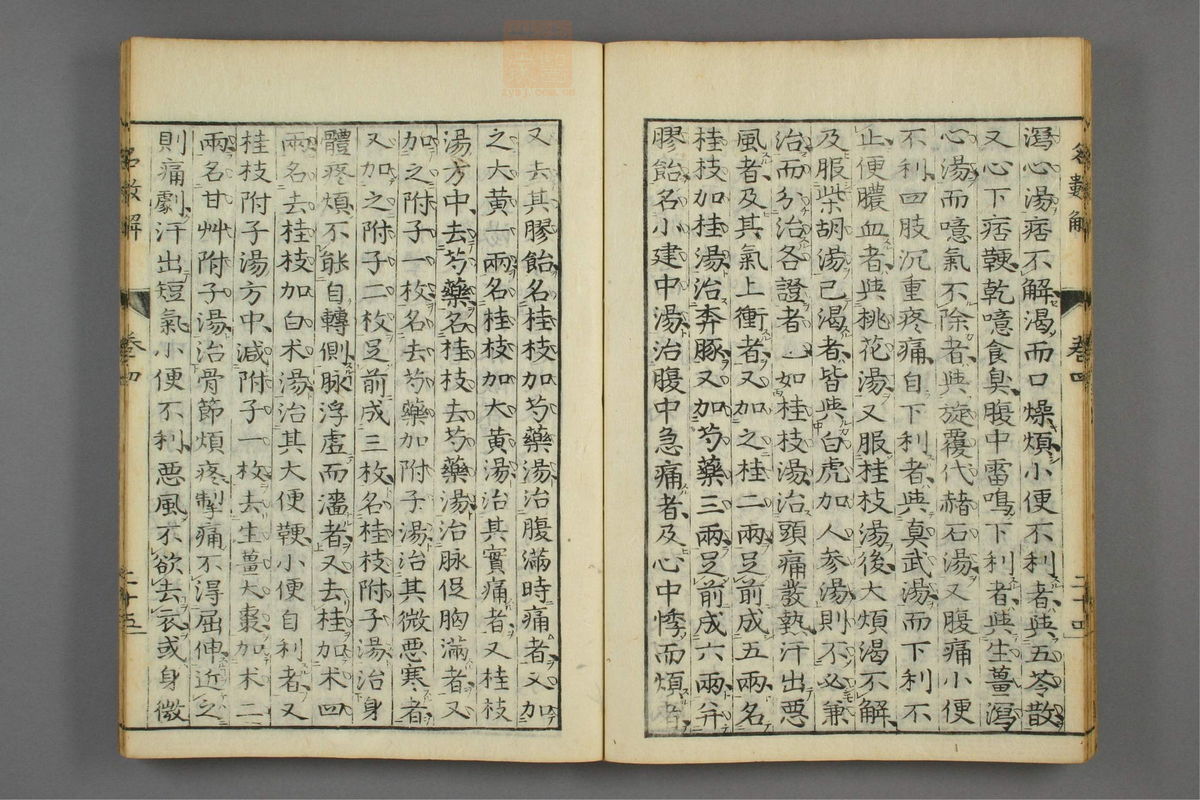 瀉心湯痞不解渴而口燥煩小便不利者與五苓散
又心下痞鞕乾噫食臭腹中雷鳴下利者與生薑瀉
心湯而噫氣不除者與旋覆代赭石湯又腹痛小便
不利四肢沉重疼痛自下利者與真武湯而下利不
止便膿血者與桃花湯又服桂枝湯後大煩渴不解
及服柴胡湯已渴者皆與白虎加人參湯則不必兼
治而分治各證者如桂枝湯治頭痛發熱汗出惡
風者及其氣上衝者又加之桂二兩足前成五兩名
桂枝加桂湯治奔豚又加芍藥三兩足前成六兩并
膠飴名小建中湯治腹中急痛者及心中悸而煩者
卷四
二十四
又去其膠飴名桂枝加芍藥湯治腹滿時痛者又加
之大黃一兩名桂枝加大黃湯治其實痛者又桂枝
湯方中去芍藥名桂枝去芍藥湯治脉促胸滿者又
加之附子一枚名去芍藥加附子湯治其微惡寒者
又加之附子二枚足前成三枚名桂枝附子湯治身
體疼煩不能自轉側脉浮虛而濇者又去桂加朮四
兩名去桂枝加白朮湯治其大便鞕小便自利者又
桂枝附子湯方中減附子一枚去生薑大棗加朮二
兩名甘艸附子湯治骨節煩疼掣痛不得屈伸近之
則痛劇汗出短氣小便不利惡風不欲去衣或身微
卷四
二十五